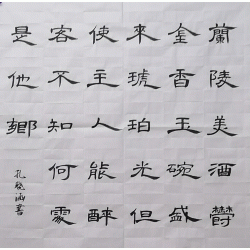 蘭陵美酒鬱
金香玉碗盛
來琥珀光但
使主人能醉
客不知何處
是他鄉
孔 書